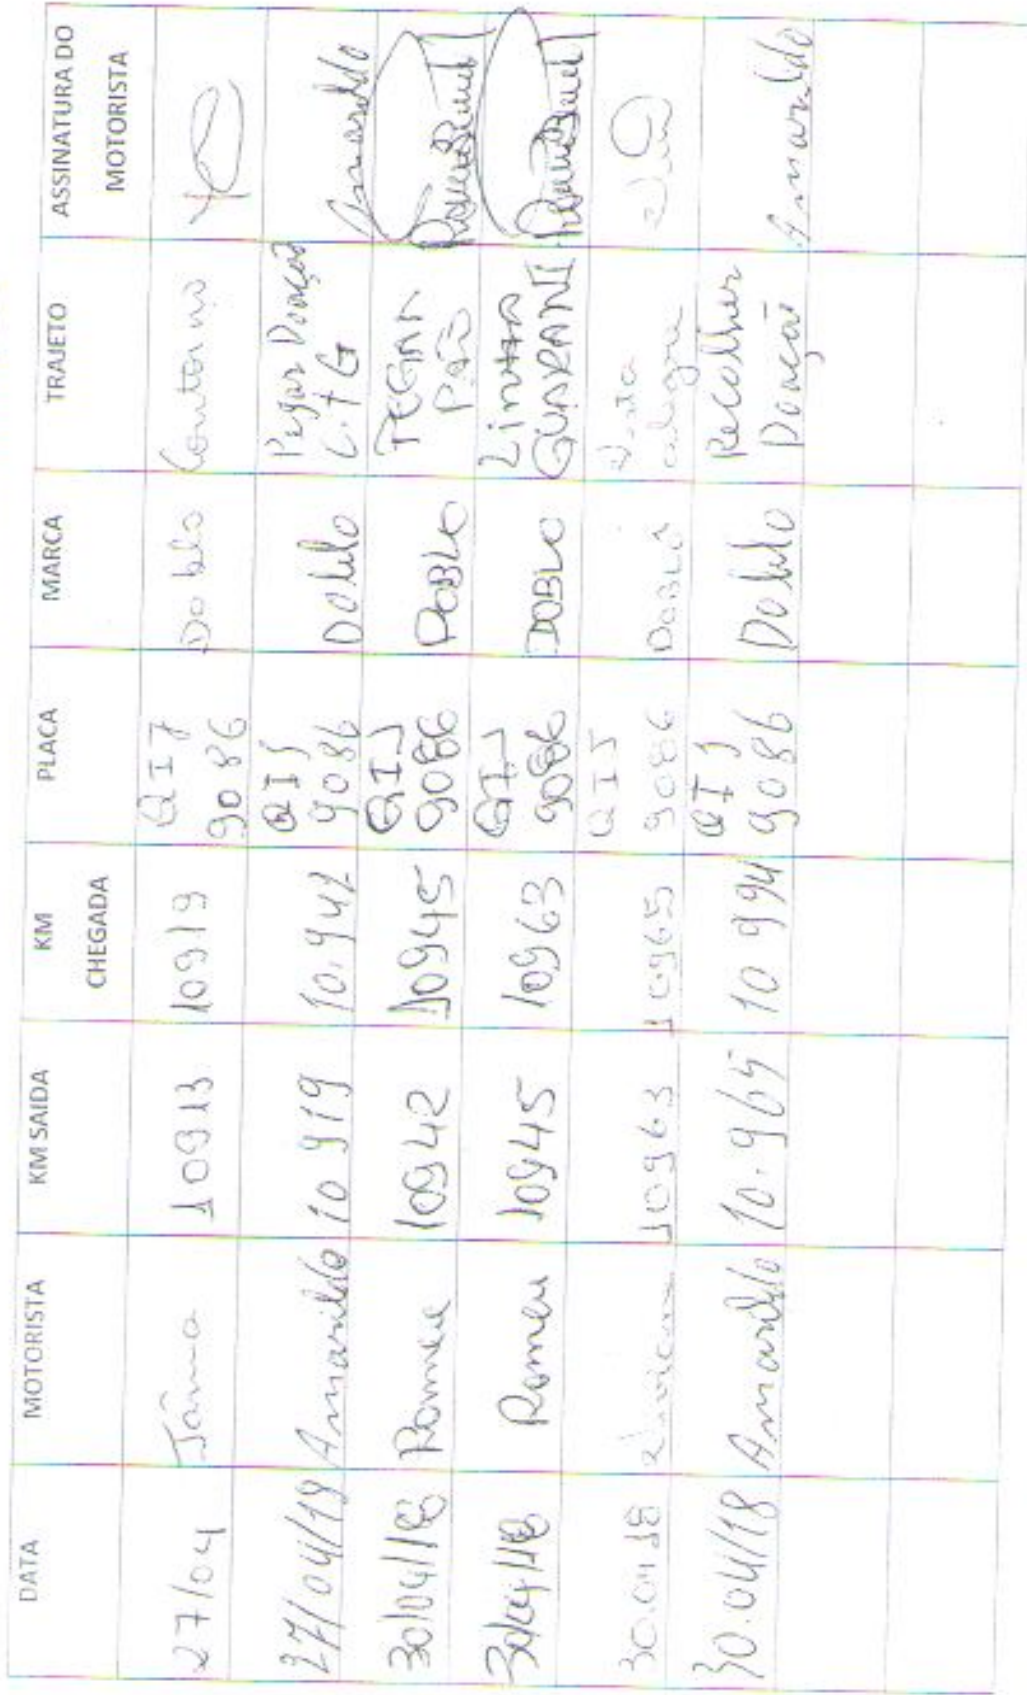 DATA MOTORISTA KM SAIDA KM CHEGADA PLACA MARCA TRAJETO ASSINATURA DO MOTORISTA
27/04 Tânia 10913 10919 QIJ 9086 Doblo Contorno
27/04/18 Amarildo 10 919 10.942 QIJ 9086 Doblo Pegar Doação CTG Amarildo
30/04/18 Romeu 10942 10945 QIJ 9086 DOBLO PEGAR PÃO
30/04/18 Romeu 10945 10963 QIJ 9086 DOBLO Linha GUARANI
30.04.18 10963 10965 QIJ 9086 DOBLO
30.04/18 Amarildo 10.965 10 994 QIJ 9086 Doblo Recolher Doação Amarildo